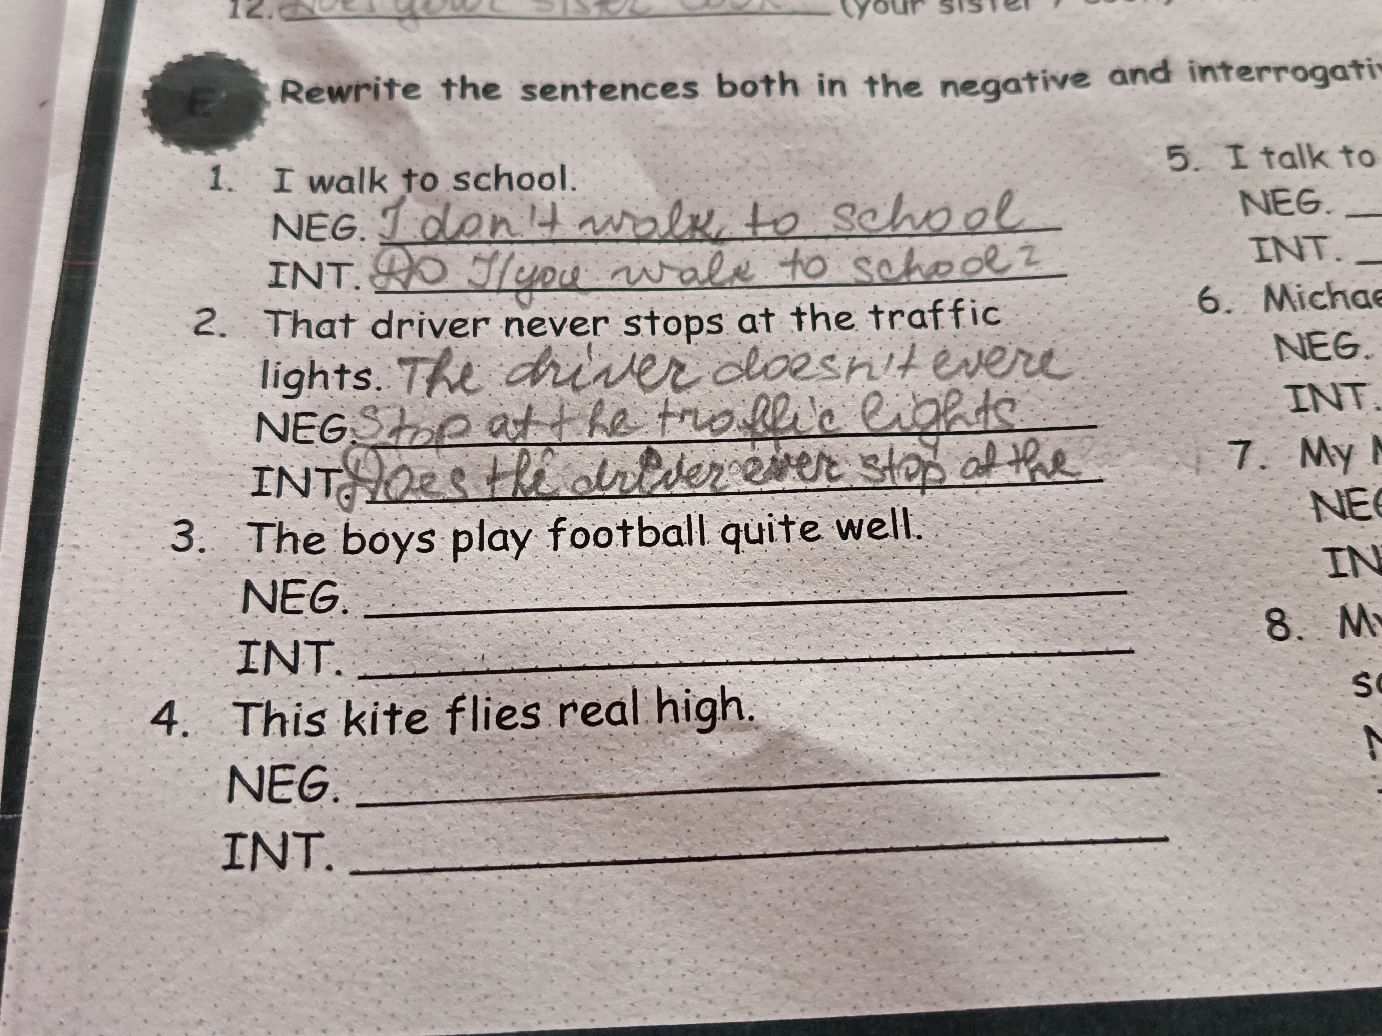 12. your sister (your sister /
E Rewrite the sentences both in the negative and
1. I walk to school.
NEG. I don't walk to school
INT. Do I/you walk to school?
2. That driver never stops at the traffic
lights. The driver doesn't evere
NEG. Stop at the traffic lights
INT. Does the driver ever stop at the
3. The boys play football quite well.
NEG.
INT.
4. This kite flies real high.
NEG.
INT.
5. I talk to
NEG.
INT.
6.
NEG.
INT.
7. My
8.